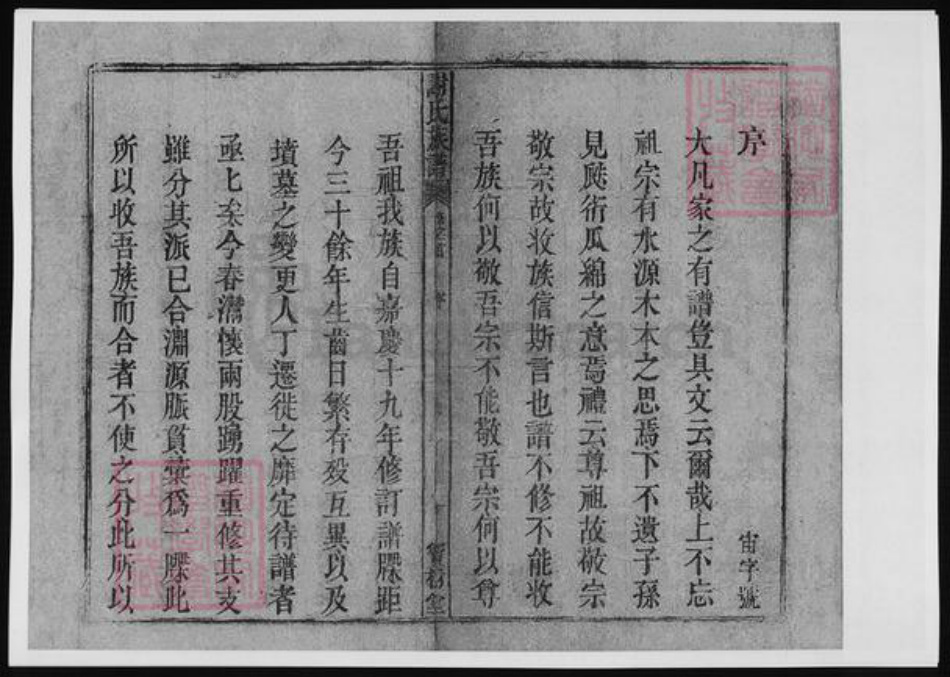 序
宙字號
大凡家之有譜豈具文云爾哉上不忘
祖宗有水源木本之思焉下不遺子孫
見瓞衍瓜綿之意焉禮云尊祖故敬宗
敬宗故收族信斯言也譜不修不能收
吾族何以敬吾宗不能敬吾宗何以尊
謝氏族譜
寶樹堂
吾祖我族自嘉慶十九年修訂譜牒距
今三十餘年生齒日繁存歿互異以及
墳墓之變更人丁遷徙之靡定待譜者
亟亟矣今春灣懷兩股踴躍重修其支
雖分其派已合淵源脈貫彙為一牒此
所以收吾族而合者不使之分此所以